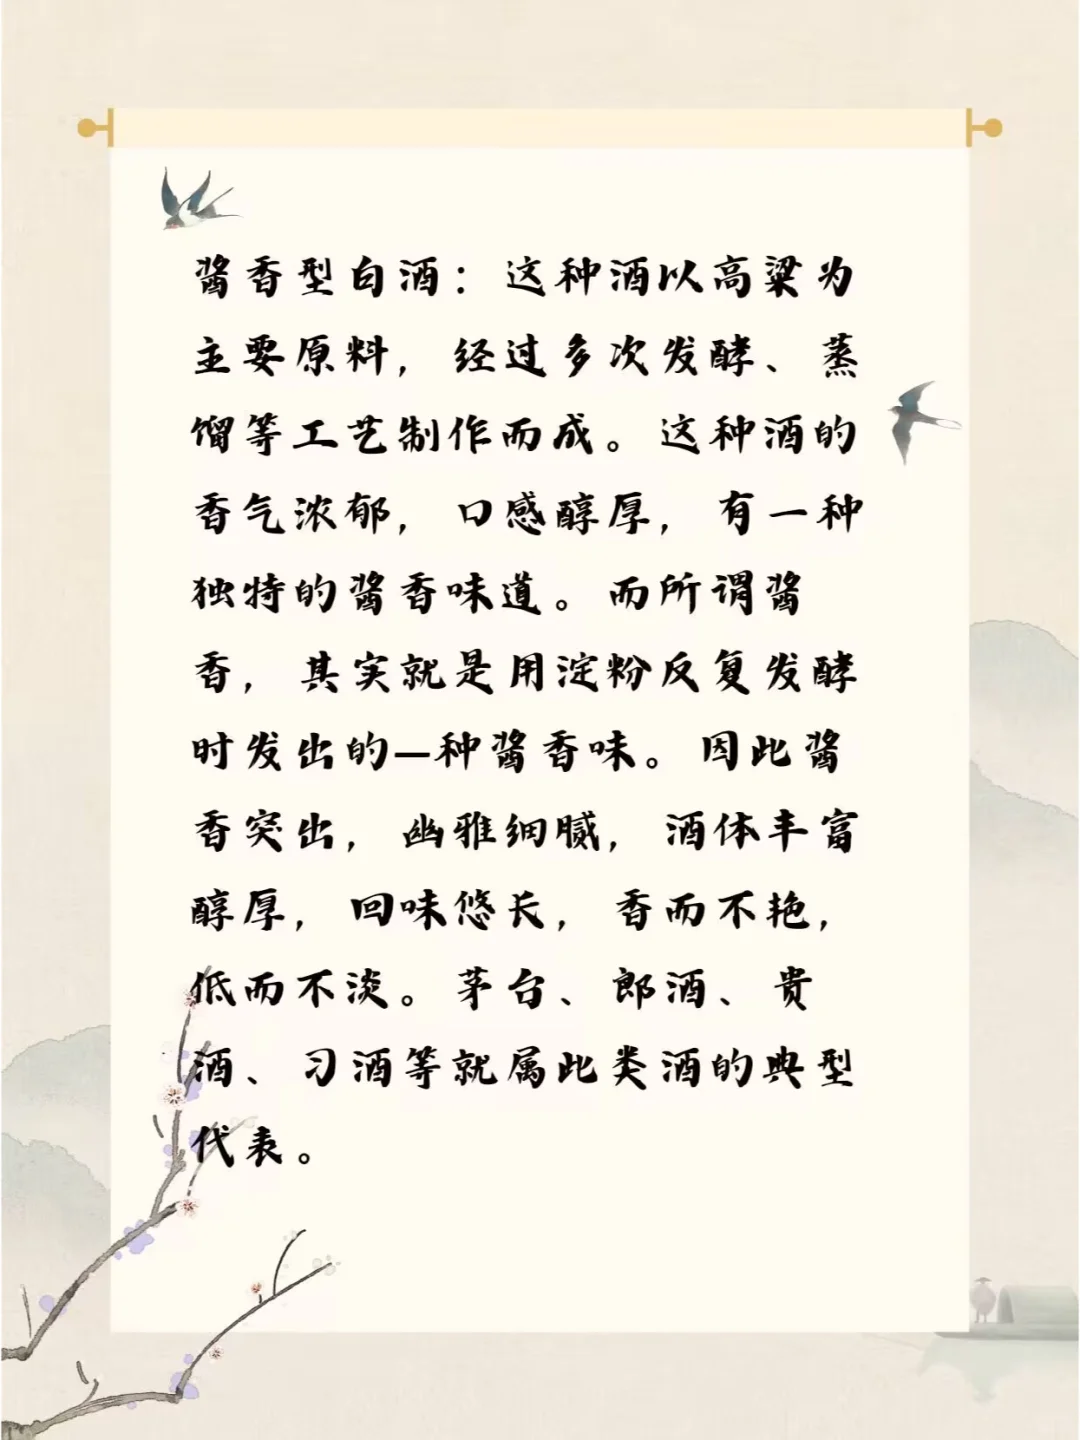 酱香型白酒：这种酒以高粱为
主要原料，经过多次发酵、蒸
馏等工艺制作而成。这种酒的
香气浓郁，口感醇厚，有一种
独特的酱香味道。而所谓酱
香，其实就是用淀粉反复发酵
时发出的—种酱香味。因此酱
香突出，幽雅细腻，酒体丰富
醇厚，回味悠长，香而不艳，
低而不淡。茅台、郎酒、贵
酒、习酒等就属此类酒的典型
代表。